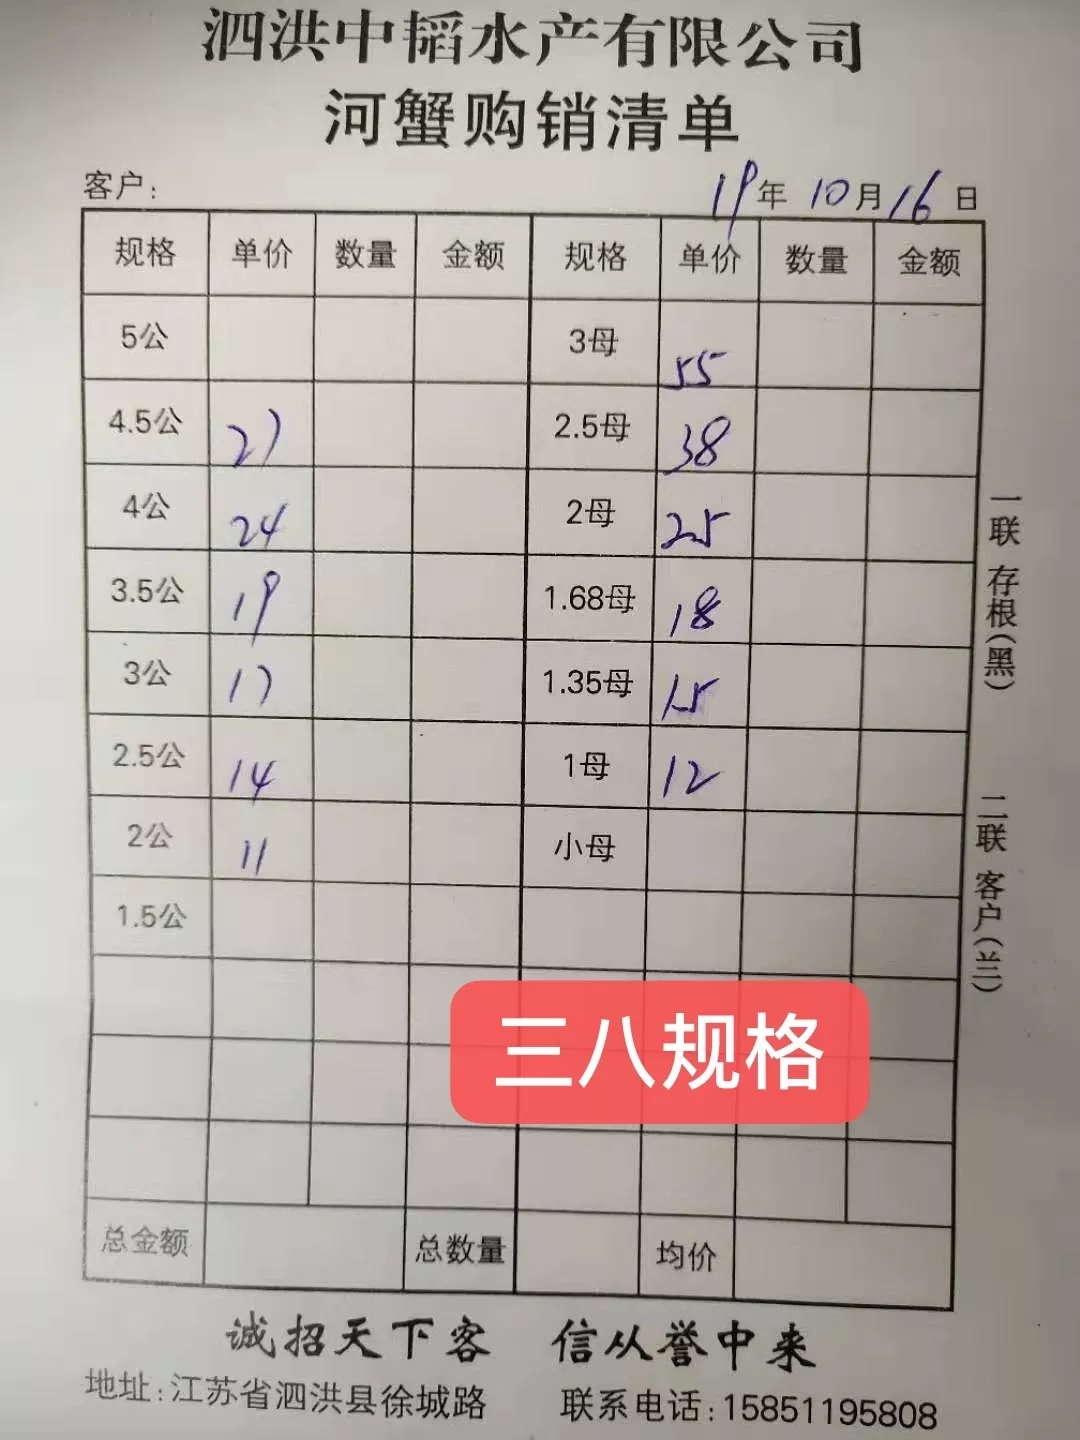 泗洪中韬水产有限公司
河蟹购销清单
客户: 19年 10月 16日
规格 单价 数量 金额 规格 单价 数量 金额
5公 3母 55
4.5公 27 2.5母 38
4公 24 2母 25
3.5公 19 1.68母 18
3公 17 1.35母 15
2.5公 14 1母 12
2公 11 小母
1.5公
三八规格
总金额 总数量 均价
一联 存根(黑) 二联 客户(兰)
诚招天下客 信从誉中来
地址:江苏省泗洪县徐城路 联系电话:15851195808